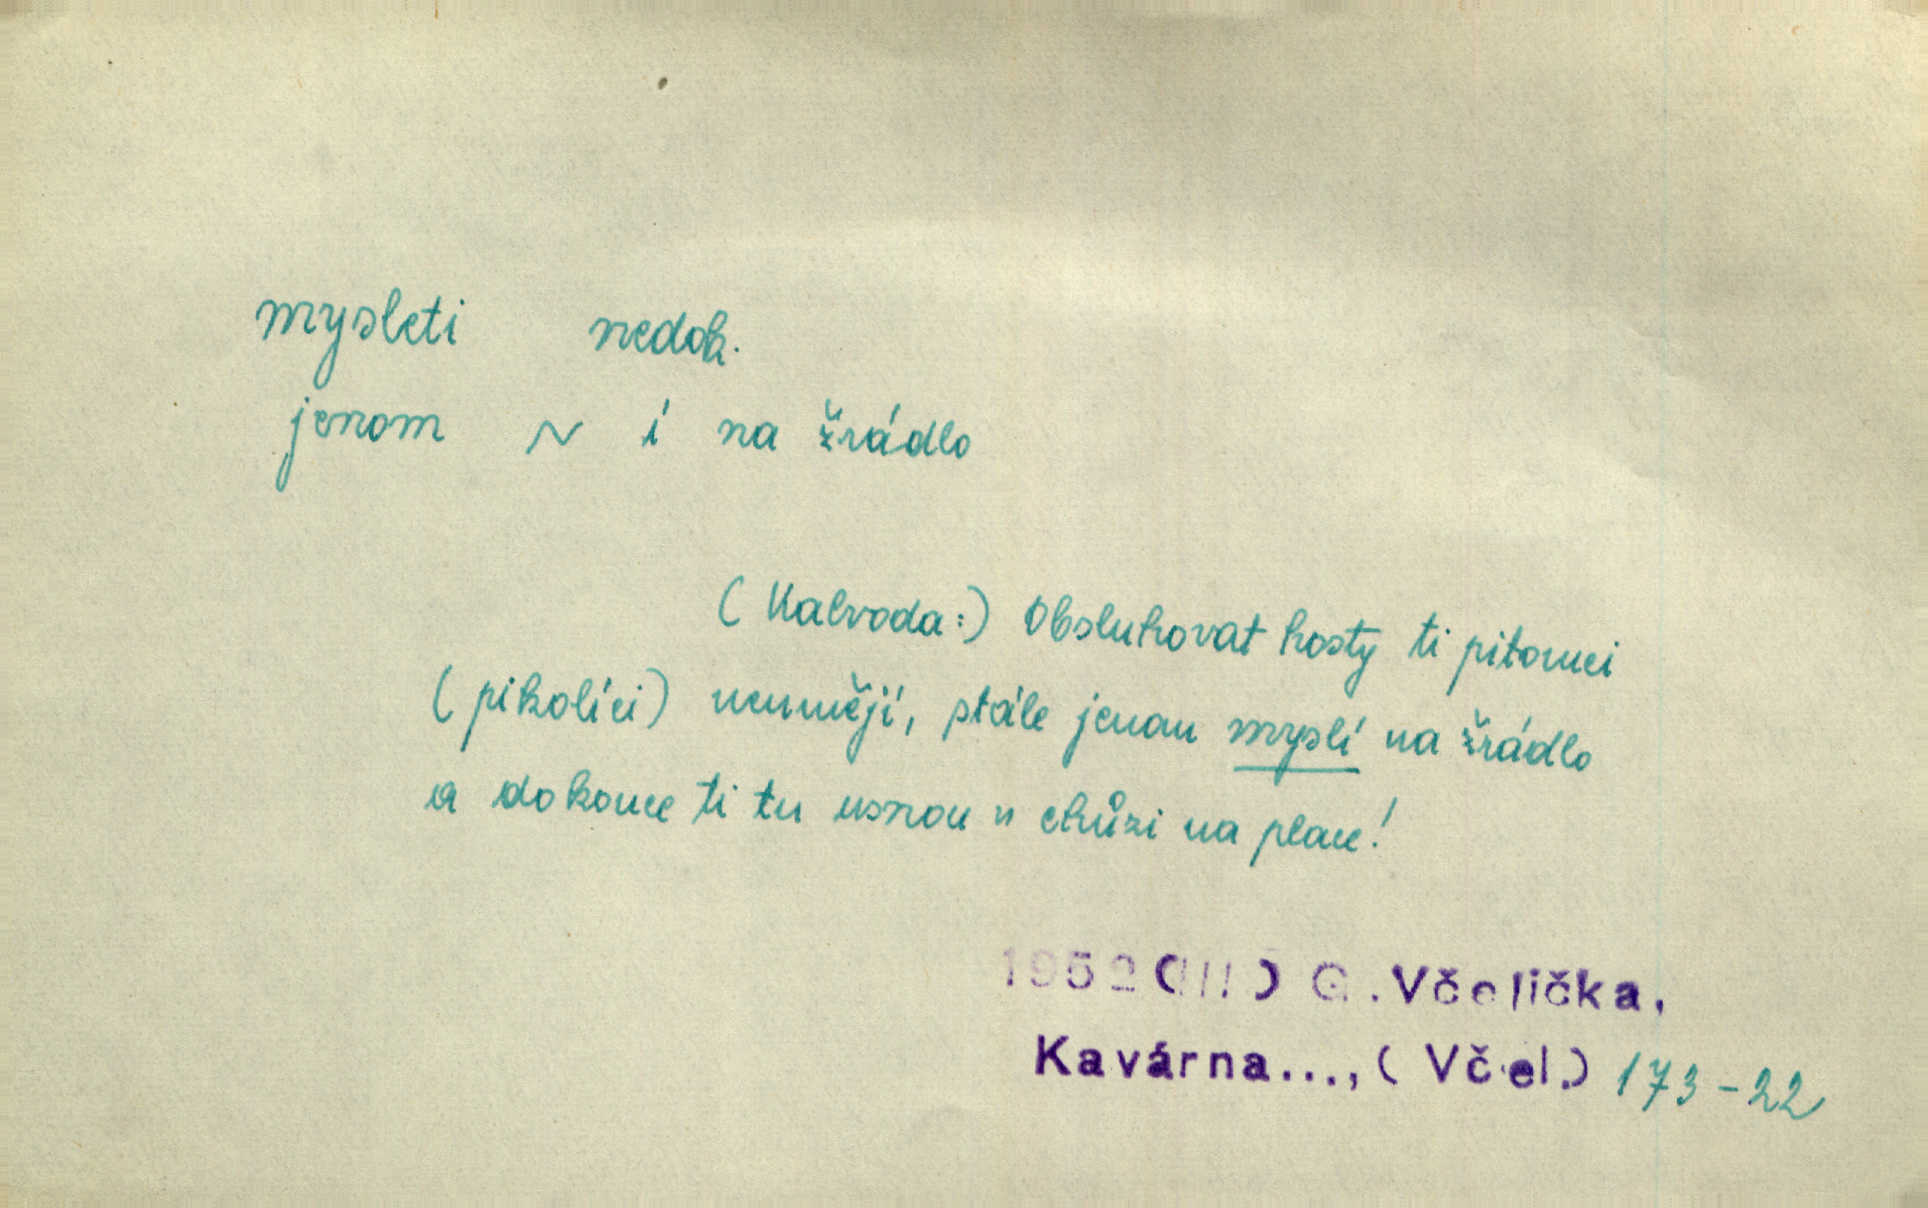 mysleti nedok.
jenom ~ í na žrádlo
(Kalvoda:) Obsluhovat hosty ti pitomci
(pikolíci) neumějí, stále jenom myslí na žrádlo
a dokonce ti tu usnou v chůzi na place!
1952 (III) G. Včelička,
Kavárna..., (Včel.) 173-22